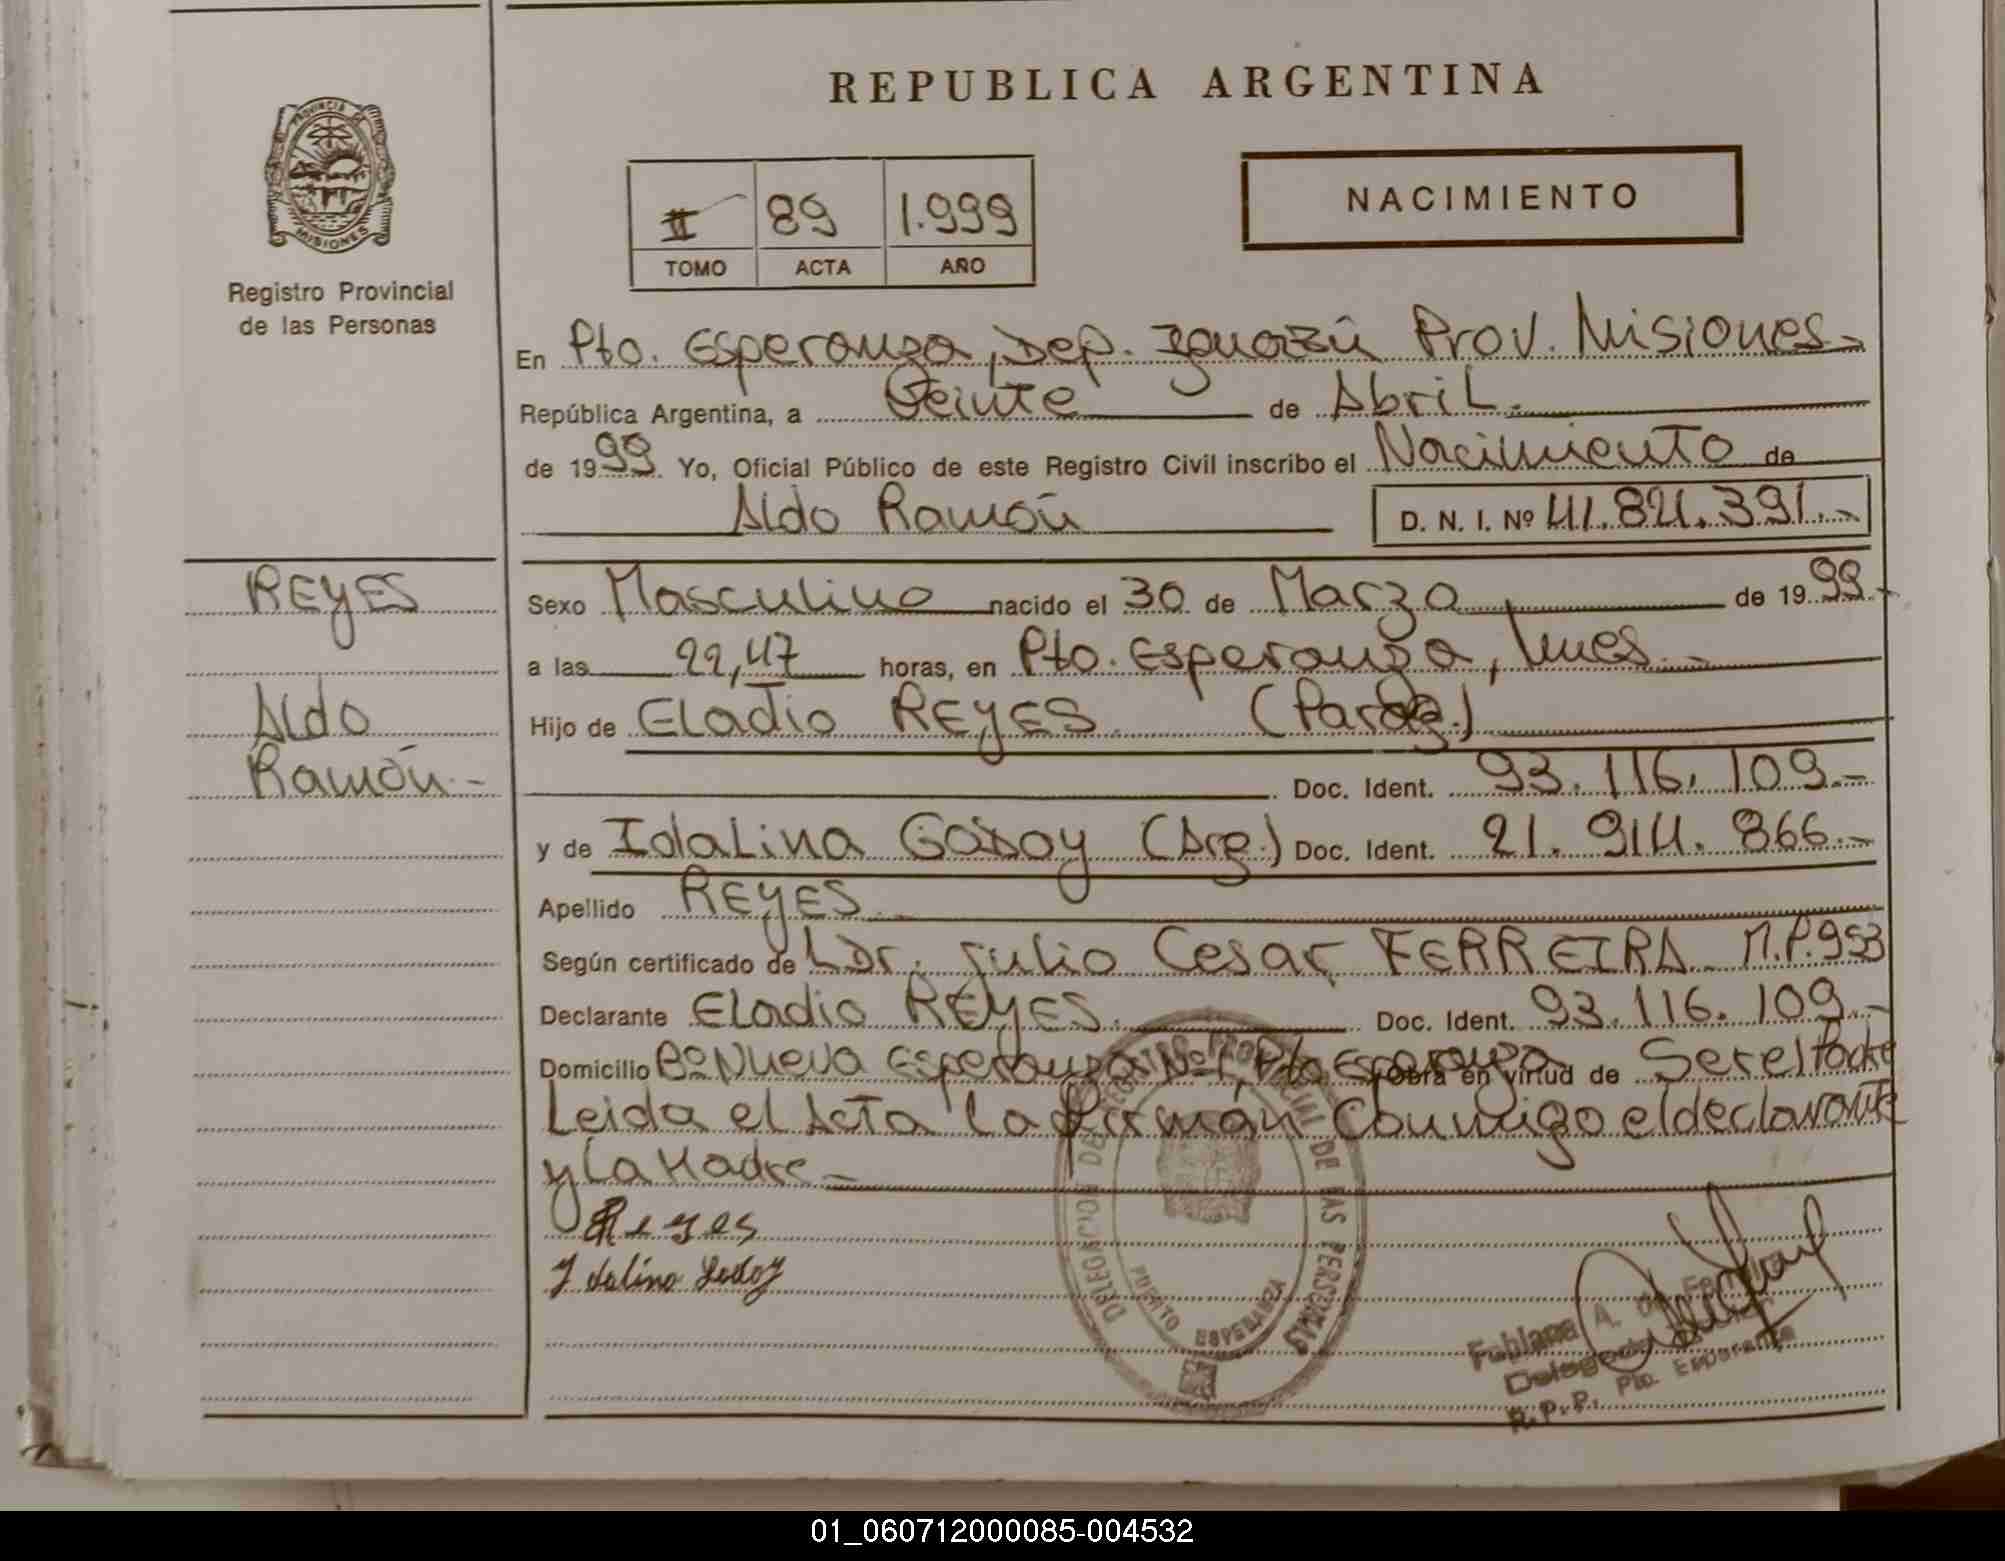 REPUBLICA ARGENTINA
PROVINCIA DE MISIONES
Registro Provincial
de las Personas
II 89 1.999
TOMO ACTA AÑO
NACIMIENTO
En Pto. Esperanza, Dep. Iguazú Prov. Misiones.-
República Argentina, a Veinte de Abril.
de 1999. Yo, Oficial Público de este Registro Civil inscribo el Nacimiento de
Aldo Ramón D. N. I. Nº 41.821.391.-
REYES
Aldo
Ramón.-
Sexo Masculino nacido el 30 de Marzo de 1999.-
a las 22,47 horas, en Pto. Esperanza, Mnes.-
Hijo de Eladio REYES (Parag.)
Doc. Ident. 93.116.109.-
y de Idalina Godoy (Arg.) Doc. Ident. 21.914.866.-
Apellido REYES
Según certificado de L Dr. Julio Cesar FERREIRA M.P.953
Declarante Eladio REYES. Doc. Ident. 93.116.109.-
Domicilio Bº Nueva Esperanza Nº1, Pto Esperanza Obra en virtud de Ser el Padre
Leida el Acta la firmán Conmigo el declarante
y La Madre.-
Reyes
Idalina Godoy
DELEGACION DE REGISTRO PROVINCIAL DE LAS PERSONAS
PUERTO ESPERANZA
Fabiana A. de
R.P.P. Pto. Esperanza
01_060712000085-004532